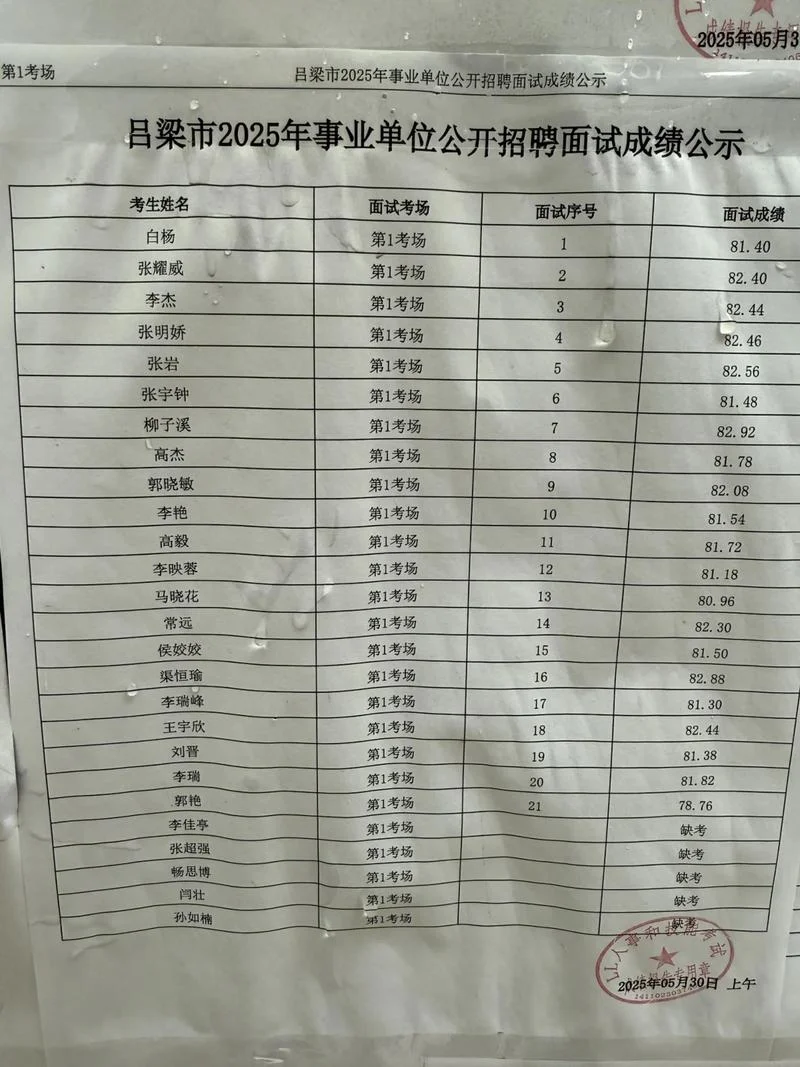 2025年05月3
第1考场 吕梁市2025年事业单位公开招聘面试成绩公示
吕梁市2025年事业单位公开招聘面试成绩公示
考生姓名 面试考场 面试序号 面试成绩
白杨 第1考场 1 81.40
张耀威 第1考场 2 82.40
李杰 第1考场 3 82.44
张明娇 第1考场 4 82.46
张岩 第1考场 5 82.56
张宇钟 第1考场 6 81.48
柳子溪 第1考场 7 82.92
高杰 第1考场 8 81.78
郭晓敏 第1考场 9 82.08
李艳 第1考场 10 81.54
高毅 第1考场 11 81.72
李映蓉 第1考场 12 81.18
马晓花 第1考场 13 80.96
常远 第1考场 14 82.30
侯姣姣 第1考场 15 81.50
渠恒瑜 第1考场 16 82.88
李瑞峰 第1考场 17 81.30
王宇欣 第1考场 18 82.44
刘晋 第1考场 19 81.38
李瑞 第1考场 20 81.82
郭艳 第1考场 21 78.76
李佳亭 第1考场 缺考
张超强 第1考场 缺考
畅思博 第1考场 缺考
闫壮 第1考场 缺考
孙如楠 第1考场 缺考
LL人事和技能考试
成绩报告专用章
2025年05月30日 上午